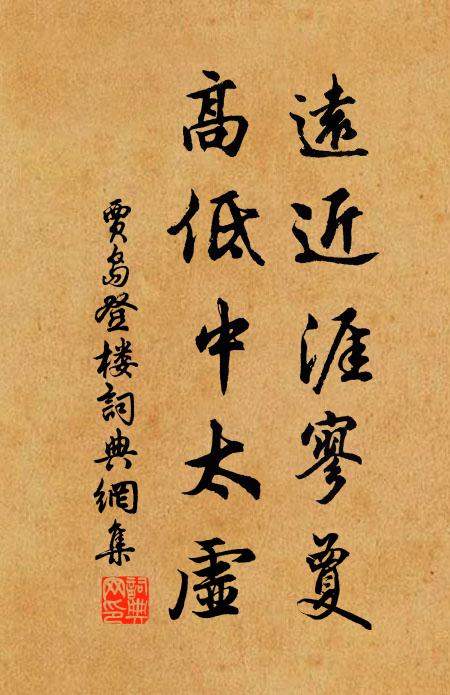 遠近涯寥夐
高低中太虛
賈島登楼詞典網集
詞典网印